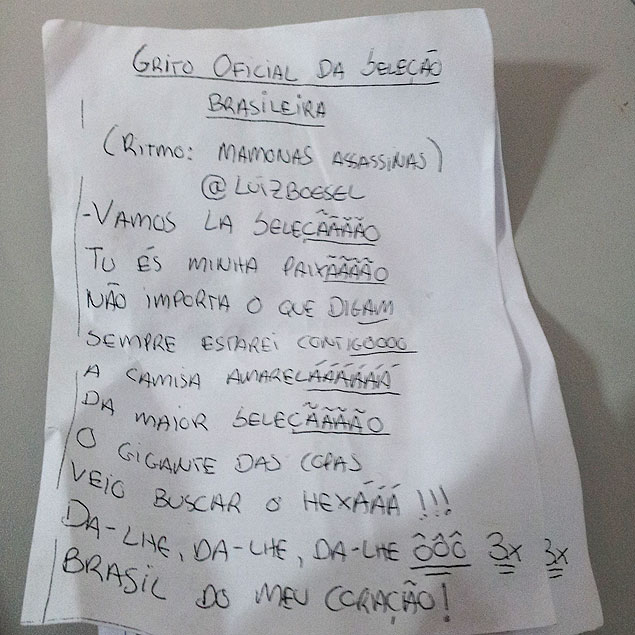 GRITO OFICIAL DA SELEÇÃO
BRASILEIRA
(RITMO: MAMONAS ASSASSINAS)
@LUIZBOESEL
-VAMOS LA SELEÇÃÃÃÃO
TU ÉS MINHA PAIXÃÃÃÃO
NÃO IMPORTA O QUE DIGAM
SEMPRE ESTAREI CONTIGOOOO
A CAMISA AMARELÁÁÁÁÁÁ
DA MAIOR SELEÇÃÃÃÃO
O GIGANTE DAS COPAS
VEIO BUSCAR O HEXÁÁÁ !!!
DA-LHE, DA-LHE, DA-LHE ÔÔÔ 3x 3x
BRASIL DO MEU CORAÇÃO!